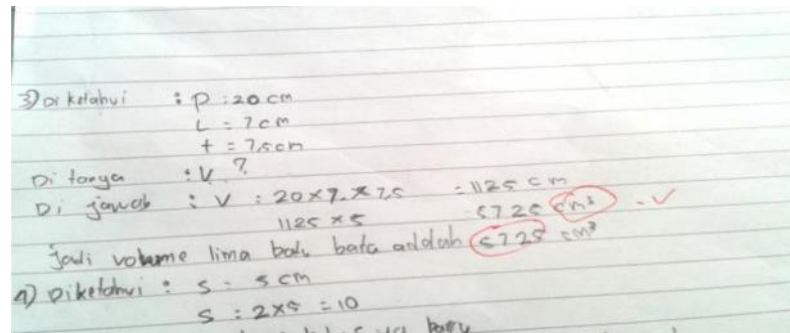 3) Diketahui : P : 20 cm
L = 7 cm
t = 7,5 cm
Di tanya : V ?
Di jawab : V : 20 x 7 x 7,5 = 1125 cm
1125 x 5 5725 cm³ - ✓
Jadi volume lima batu bata adalah 5725 cm³
4) Diketahui : S = 5 cm
S : 2x5 = 10
baru